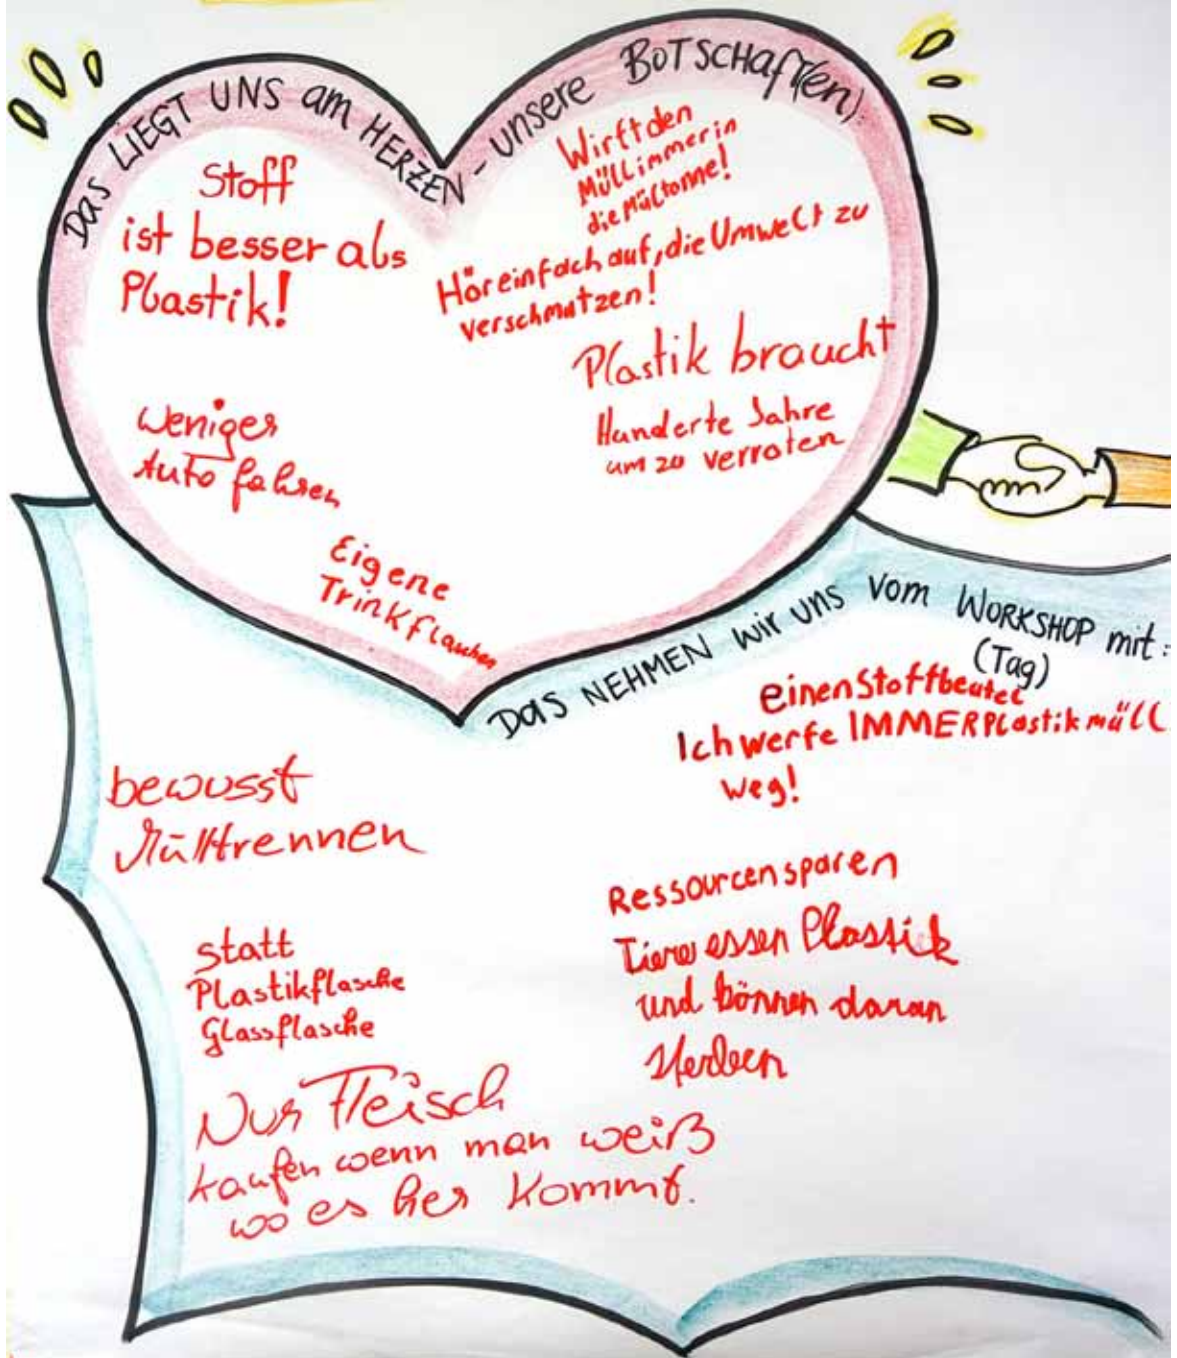 Das LIEGT UNS am HERZEN - unsere BOTSCHaft(en):
Stoff
ist besser als
Plastik!
Wirft den
Müll immer in
die Mültonne!
Hör einfach auf, die Umwelt zu
verschmutzen!
Plastik braucht
Hunderte Jahre
um zu verroten
Weniger
Auto fahren
Eigene
Trinkflaschen
Das NEHMEN wir uns vom WORKSHOP mit:
(Tag)
einen Stoffbeutel
Ich werfe IMMER Plastikmüll
weg!
bewusst
Mülltrennen
Ressourcen sparen
Tiere essen Plastik
und können daran
sterben
statt
Plastikflasche
Glassflasche
Nur Fleisch
kaufen wenn man weiß
wo es her kommt.